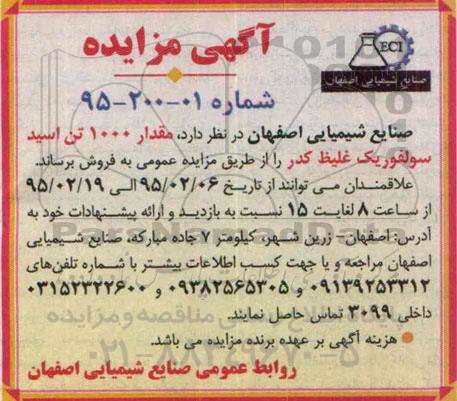 آگهی مزایده
ECI
صنایع شیمیایی اصفهان
شماره ۰۱-۲۰۰-۹۵
صنایع شیمیایی اصفهان در نظر دارد، مقدار ۱۰۰۰ تن اسید
سولفوریک غلیظ کدر را از طریق مزایده عمومی به فروش برساند.
علاقمندان می توانند از تاریخ ۹۵/۰۲/۰۶ الی ۹۵/۰۲/۱۹
از ساعت ۸ لغایت ۱۵ نسبت به بازدید و ارائه پیشنهادات خود به
آدرس: اصفهان- زرین شهر- کیلومتر ۷ جاده مبارکه، صنایع شیمیایی
اصفهان مراجعه و یا جهت کسب اطلاعات بیشتر با شماره تلفن‌های
۰۹۱۳۹۲۵۳۳۱۲ و ۰۹۳۸۲۵۶۵۳۰۵ و ۰۳۱۵۲۳۲۲۶۰۰
داخلی ۳۰۹۹ تماس حاصل نمایند.
هزینه آگهی بر عهده برنده مزایده می باشد.
۰۲۱-۸۸۳۴۹۶۷۰-۵
روابط عمومی صنایع شیمیایی اصفهان